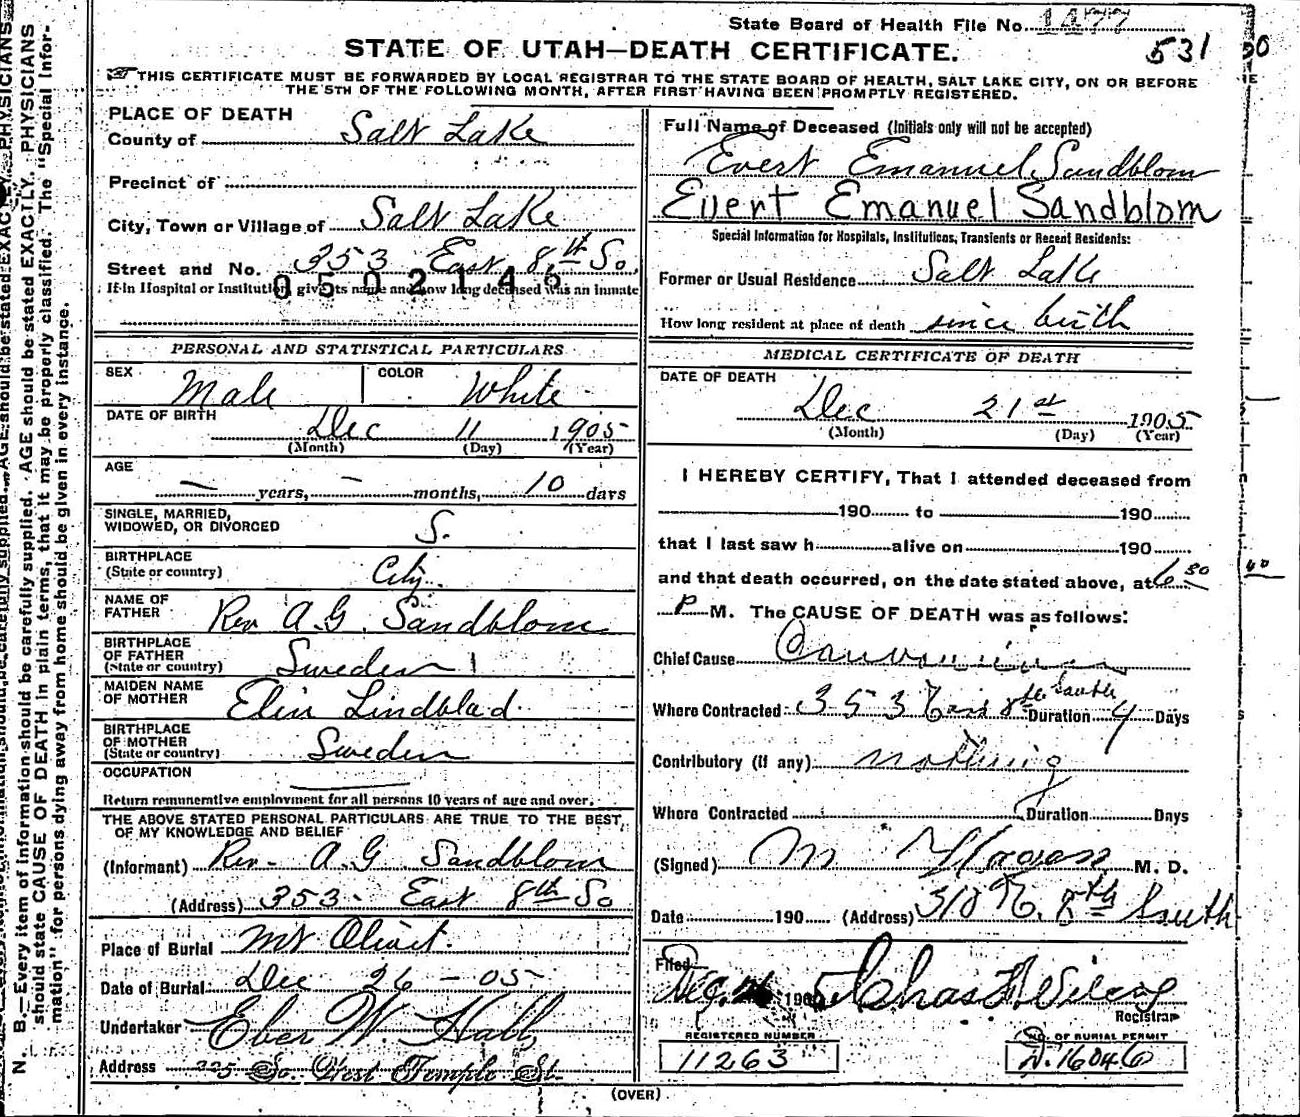 State Board of Health File No. 1477
531
STATE OF UTAH—DEATH CERTIFICATE.
THIS CERTIFICATE MUST BE FORWARDED BY LOCAL REGISTRAR TO THE STATE BOARD OF HEALTH, SALT LAKE CITY, ON OR BEFORE
THE 5TH OF THE FOLLOWING MONTH, AFTER FIRST HAVING BEEN PROMPTLY REGISTERED.
PLACE OF DEATH
County of Salt Lake
Precinct of
City, Town or Village of Salt Lake
Street and No. 353 East 8th So.
0502145
If in Hospital or Institution, give its name and how long deceased was an inmate
PERSONAL AND STATISTICAL PARTICULARS
SEX Male COLOR White
DATE OF BIRTH
Dec 11 1905
(Month) (Day) (Year)
AGE
— years, — months, 10 days
SINGLE, MARRIED,
WIDOWED, OR DIVORCED S.
BIRTHPLACE
(State or country) City.
NAME OF
FATHER Rev A.G. Sandblom
BIRTHPLACE
OF FATHER
(State or country) Sweden
MAIDEN NAME
OF MOTHER Elin Lindblad
BIRTHPLACE
OF MOTHER
(State or country) Sweden
OCCUPATION
Return remunerative employment for all persons 10 years of age and over.
THE ABOVE STATED PERSONAL PARTICULARS ARE TRUE TO THE BEST
OF MY KNOWLEDGE AND BELIEF
(Informant) Rev. A.G Sandblom
(Address) 353 East 8th So
Place of Burial Mt Olivet.
Date of Burial Dec 26 - 05
Undertaker Eber W. Hall
Address So. West Temple St.
Full Name of Deceased (Initials only will not be accepted)
Evert Emanuel Sandblom
Evert Emanuel Sandblom
Special Information for Hospitals, Institutions, Transients or Recent Residents:
Former or Usual Residence Salt Lake
How long resident at place of death since birth
MEDICAL CERTIFICATE OF DEATH
DATE OF DEATH
Dec 21st 1905
(Month) (Day) (Year)
I HEREBY CERTIFY, That I attended deceased from
190 to 190
that I last saw h alive on 190
and that death occurred, on the date stated above, at 6 30
P M. The CAUSE OF DEATH was as follows:
Chief Cause
Where Contracted 353 East 8th South Duration 4 Days
Contributory (if any) nothing
Where Contracted Duration Days
(Signed) M. D.
Date 190 (Address) 8th South
Filed Dec. 1905 Chas
Registrar
REGISTERED NUMBER
11263
NO. OF BURIAL PERMIT
D.16046
(OVER)
N. B.—Every item of information should be carefully supplied. AGE should be stated EXACTLY. PHYSICIANS
should state CAUSE OF DEATH in plain terms, that it may be properly classified. The "Special Infor-
mation" for persons dying away from home should be given in every instance.